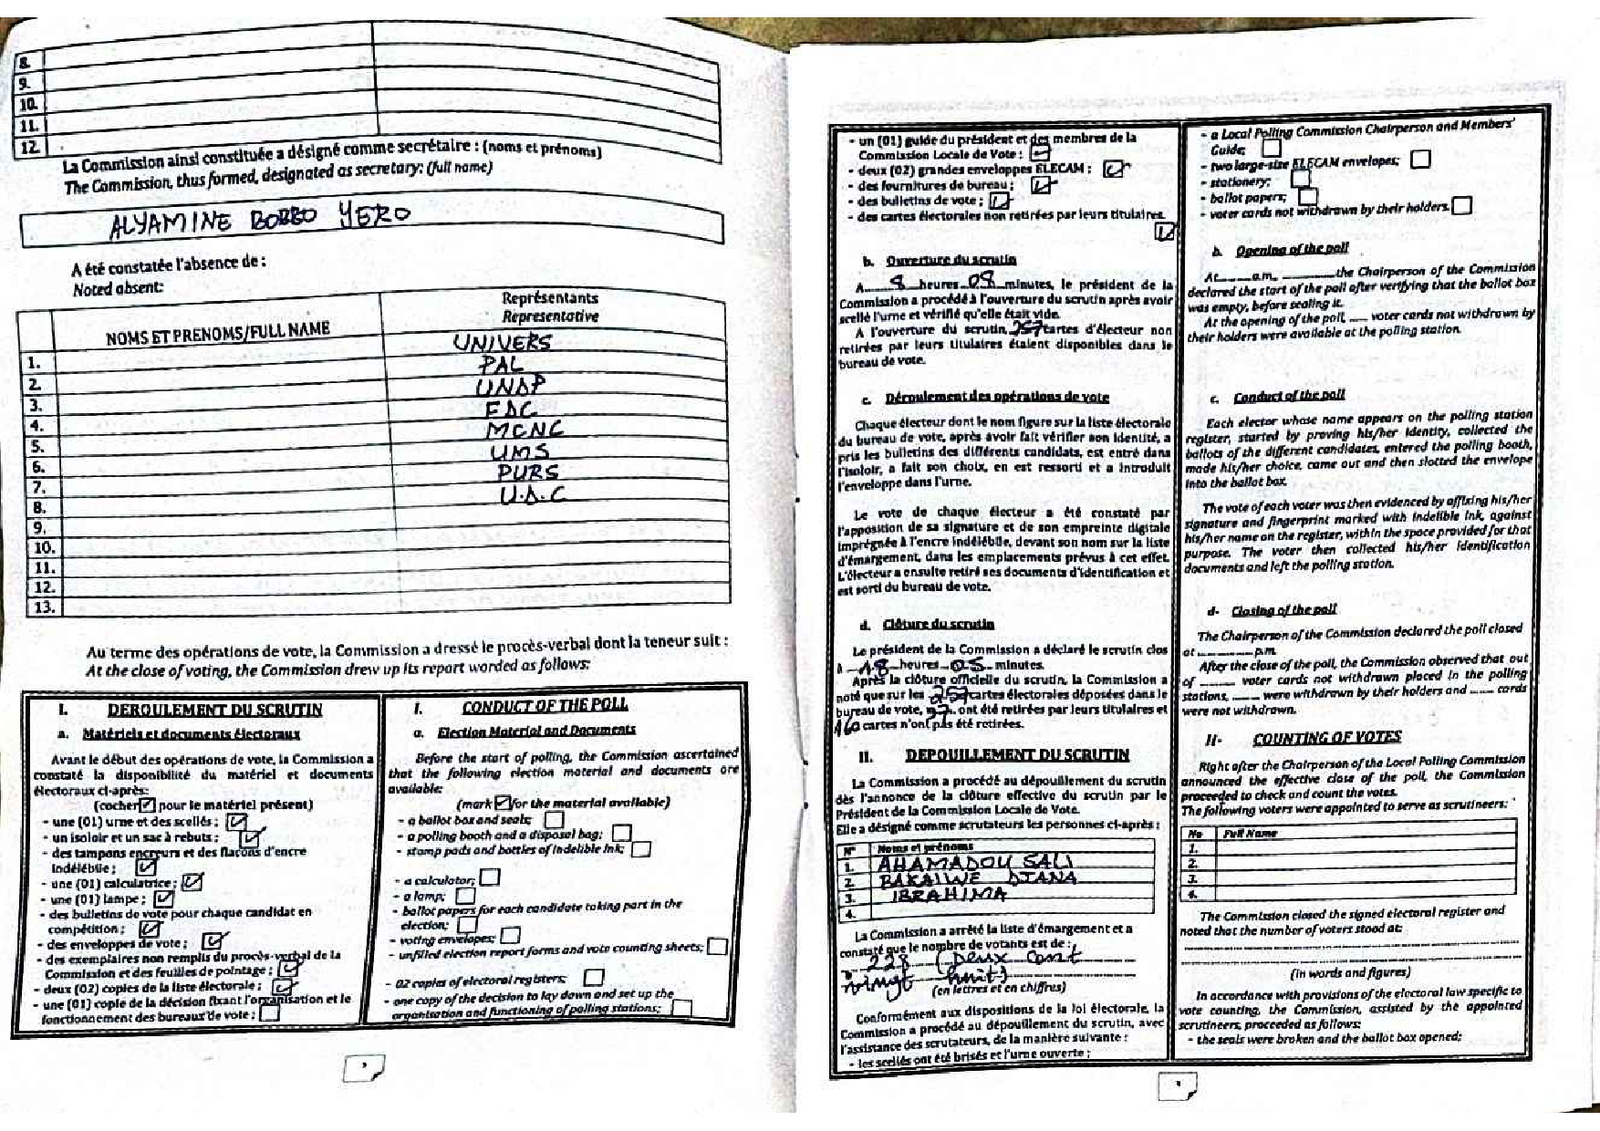 8.
9.
10.
11.
12.
La Commission ainsi constituée a désigné comme secrétaire : (noms et prénoms)
The Commission, thus formed, designated as secretary: (full name)
ALYAMINE BOBBO YERO
A été constatée l'absence de :
Noted absent:
NOMS ET PRENOMS/FULL NAME
Représentants
Representative
1. UNIVERS
2. PAL
3. UNDP
4. FDC
5. MCNC
6. UMS
7. PURS
8. U.D.C
9.
10.
11.
12.
13.
Au terme des opérations de vote, la Commission a dressé le procès-verbal dont la teneur suit :
At the close of voting, the Commission drew up its report worded as follows:
I. DEROULEMENT DU SCRUTIN
a. Matériels et documents électoraux
Avant le début des opérations de vote, la Commission a
constaté la disponibilité du matériel et documents
électoraux ci-après:
(cocher ☑ pour le matériel présent)
- une (01) urne et des scellés ; ☑
- un isoloir et un sac à rebuts ; ☑
- des tampons encreurs et des flacons d'encre
indélébile ; ☑
- une (01) calculatrice ; ☑
- une (01) lampe ; ☑
- des bulletins de vote pour chaque candidat en
compétition ; ☑
- des enveloppes de vote ; ☑
- des exemplaires non remplis du procès-verbal de la
Commission et des feuilles de pointage ; ☑
- deux (02) copies de la liste électorale ; ☑
- une (01) copie de la décision fixant l'organisation et le
fonctionnement des bureaux de vote ; ☐
I. CONDUCT OF THE POLL
a. Election Material and Documents
Before the start of polling, the Commission ascertained
that the following election material and documents are
available:
(mark ☑ for the material available)
- a ballot box and seals; ☐
- a polling booth and a disposal bag; ☐
- stamp pads and bottles of indelible ink; ☐
- a calculator; ☐
- a lamp; ☐
- ballot papers for each candidate taking part in the
election; ☐
- voting envelopes; ☐
- unfilled election report forms and vote counting sheets; ☐
- 02 copies of electoral registers; ☐
- one copy of the decision to lay down and set up the
organisation and functioning of polling stations; ☐
- un (01) guide du président et des membres de la
Commission Locale de Vote : ☑
- deux (02) grandes enveloppes ELECAM : ☑
- des fournitures de bureau ; ☑
- des bulletins de vote ; ☑
- des cartes électorales non retirées par leurs titulaires
☑
b. Ouverture du scrutin
A 8 heures 08 minutes, le président de la
Commission a procédé à l'ouverture du scrutin après avoir
scellé l'urne et vérifié qu'elle était vide.
A l'ouverture du scrutin, 257 cartes d'électeur non
retirées par leurs titulaires étaient disponibles dans le
bureau de vote.
c. Déroulement des opérations de vote
Chaque électeur dont le nom figure sur la liste électorale
du bureau de vote, après avoir fait vérifier son identité, a
pris les bulletins des différents candidats, est entré dans
l'isoloir, a fait son choix, en est ressorti et a introduit
l'enveloppe dans l'urne.
Le vote de chaque électeur a été constaté par
l'apposition de sa signature et de son empreinte digitale
imprégnée à l'encre indélébile, devant son nom sur la liste
d'émargement, dans les emplacements prévus à cet effet.
L'électeur a ensuite retiré ses documents d'identification et
est sorti du bureau de vote.
d. Clôture du scrutin
Le président de la Commission a déclaré le scrutin clos
à 18 heures 05 minutes.
Après la clôture officielle du scrutin, la Commission a
noté que sur les 257 cartes électorales déposées dans le
bureau de vote, 97 ont été retirées par leurs titulaires et
160 cartes n'ont pas été retirées.
II. DEPOUILLEMENT DU SCRUTIN
La Commission a procédé au dépouillement du scrutin
dès l'annonce de la clôture effective du scrutin par le
Président de la Commission Locale de Vote.
Elle a désigné comme scrutateurs les personnes ci-après :
N° Noms et prénoms
1. AHAMADOU SALI
2. BAKAIWE DJANA
3. IBRAHIMA
4.
La Commission a arrêté la liste d'émargement et a
constaté que le nombre de votants est de :
228 (Deux cent
vingt huit)
(en lettres et en chiffres)
Conformément aux dispositions de la loi électorale, la
Commission a procédé au dépouillement du scrutin, avec
l'assistance des scrutateurs, de la manière suivante :
- les scellés ont été brisés et l'urne ouverte ;
- a Local Polling Commission Chairperson and Members'
Guide; ☐
- two large-size ELECAM envelopes; ☐
- stationery; ☐
- ballot papers; ☐
- voter cards not withdrawn by their holders. ☐
b. Opening of the poll
At ...... a.m, .......... the Chairperson of the Commission
declared the start of the poll after verifying that the ballot box
was empty, before sealing it.
At the opening of the poll, ..... voter cards not withdrawn by
their holders were available at the polling station.
c. Conduct of the poll
Each elector whose name appears on the polling station
register, started by proving his/her identity, collected the
ballots of the different candidates, entered the polling booth,
made his/her choice, came out and then slotted the envelope
into the ballot box.
The vote of each voter was then evidenced by affixing his/her
signature and fingerprint marked with indelible ink, against
his/her name on the register, within the space provided for that
purpose. The voter then collected his/her identification
documents and left the polling station.
d- Closing of the poll
The Chairperson of the Commission declared the poll closed
at .......... p.m.
After the close of the poll, the Commission observed that out
of ....... voter cards not withdrawn placed in the polling
stations, ..... were withdrawn by their holders and ..... cards
were not withdrawn.
II- COUNTING OF VOTES
Right after the Chairperson of the Local Polling Commission
announced the effective close of the poll, the Commission
proceeded to check and count the votes.
The following voters were appointed to serve as scrutineers:
No Full Name
1.
2.
3.
4.
The Commission closed the signed electoral register and
noted that the number of voters stood at:
(in words and figures)
In accordance with provisions of the electoral law specific to
vote counting, the Commission, assisted by the appointed
scrutineers, proceeded as follows:
- the seals were broken and the ballot box opened;